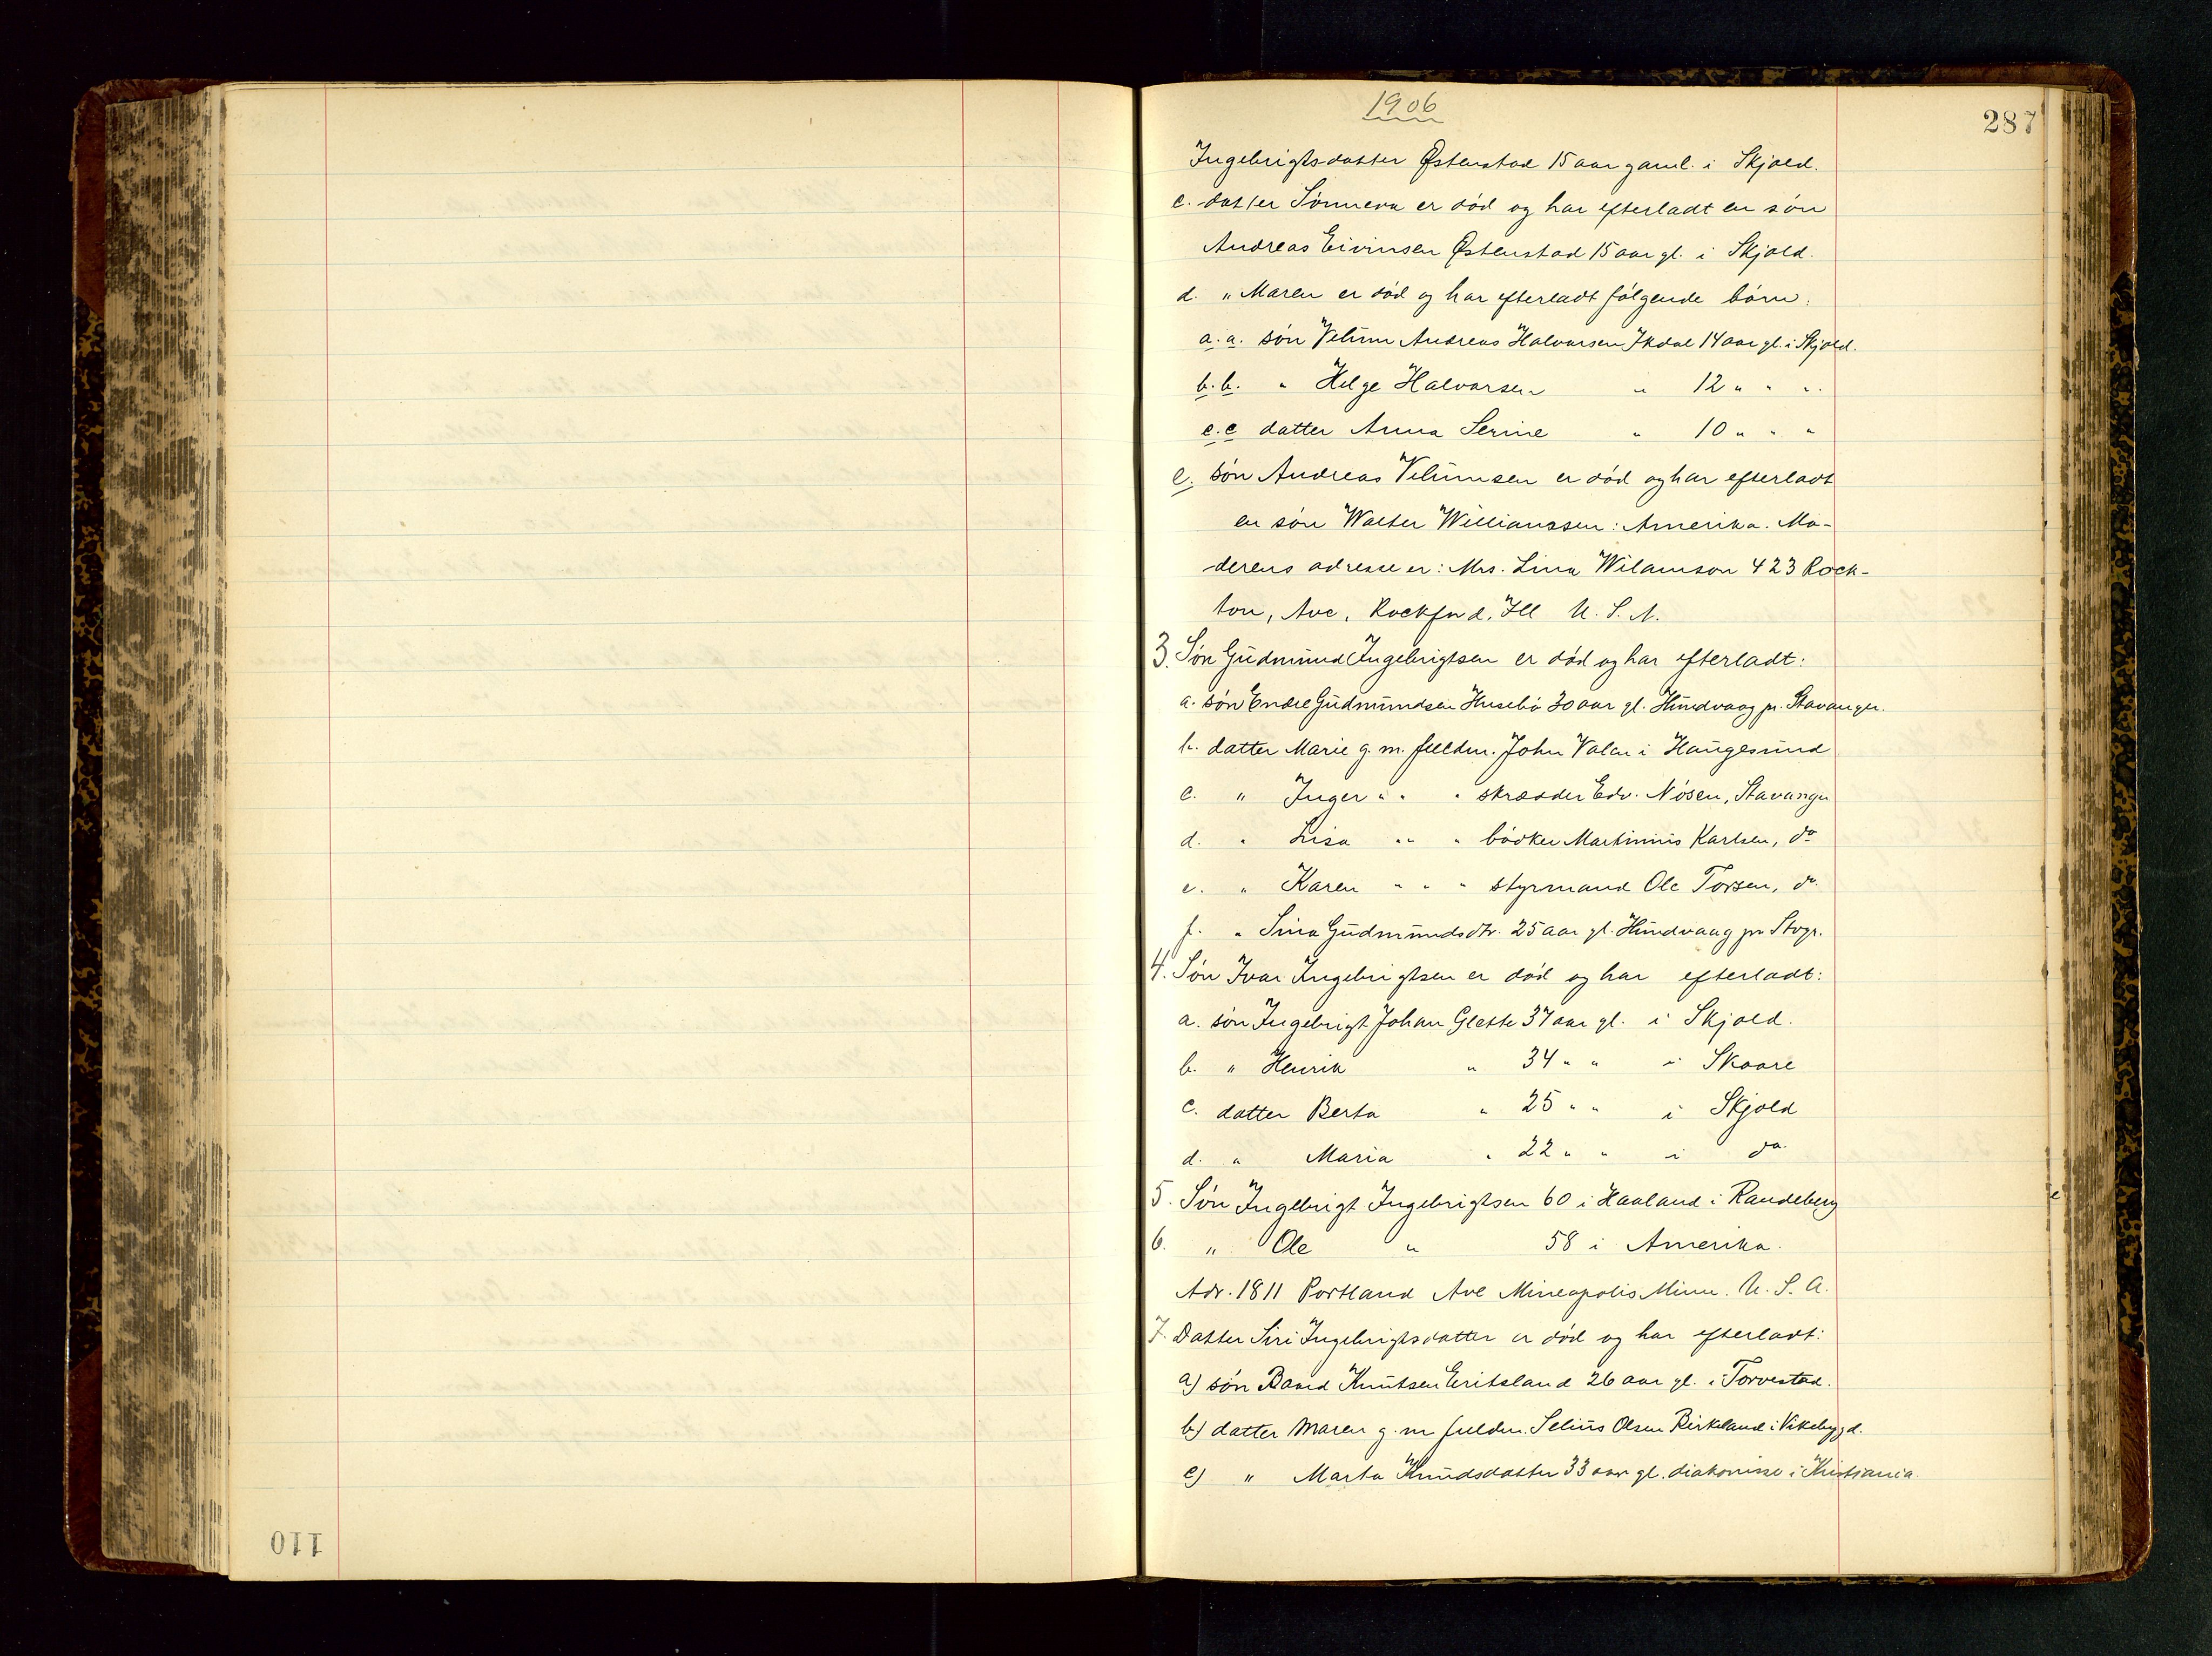 1906
287
Ingebrigtsdatter Østenstad 15 aar gaml. i Skjold.
c. datter Sønneva er død og har efterladt en søn
Andreas Eivinsen Østenstad 15 aar gl. i Skjold.
d. " Maren er død og har efterladt følgende børn:
a.a. søn Velum Andreas Halvorsen Ikdal 14 aar gl. i Skjold.
b.b. " Helge Halvorsen " 12 " " "
c.c datter Anna Serine " 10 " " "
e. søn Andreas Velumsen er død og har efterladt
en søn Walter Williamssen: Amerika. Mo-
derens adresse er: Mrs. Lina Wilamson 423 Rock-
ton, Ave, Rockford, Ill U. S. A.
3. Søn Gudmund Ingebrigtsen er død og har efterladt:
a. søn Endre Gudmundsen Husebø 30 aar gl. Hundvaag pr. Stavanger.
b. datter Marie g. m. fuldm. John Valen i Haugesund
c. " Inger " " " skrædder Edv. Nøsen, Stavanger
d. " Lisa " " " bødker Martinius Karlsen, do
e. " Karen " " " styrmand Ole Torsen, do.
f. " Sina Gudmundsdtr. 25 aar gl. Hundvaag pr Stvgr.
4. Søn Ivar Ingebrigtsen er død og har efterladt:
a. søn Ingebrigt Johan Glette 37 aar gl. i Skjold.
b. " Henrik " 34 " " i Skaare
c. datter Berta " 25 " " i Skjold
d. " Maria " 22 " " i do.
5. Søn Ingebrigt Ingebrigtsen 60 i Haaland i Randeberg
6. " Ole " 58 i Amerika.
Adr. 1811 Portland Ave Mineapolis Minn. U. S. A.
7. Datter Siri Ingebrigtsdatter er død og har efterladt:
a) søn Baard Knutsen Eritsland 26 aar gl. i Torvestad.
b) datter Maren g. m fuldm. Selius Olsen Birkeland i Vikebygd.
c) " Marta Knudsdatter 33 aar gl. diakonisse i Kristiania.
110